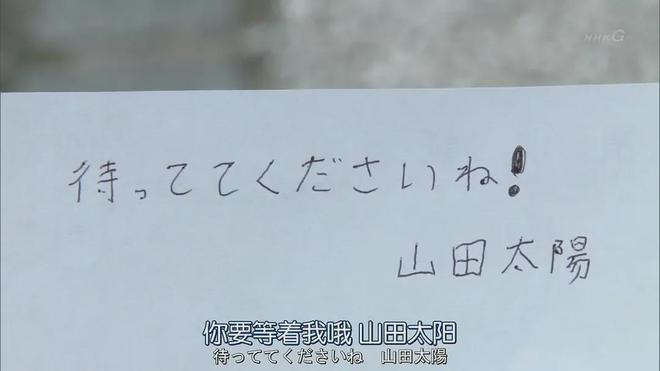 NHKG
待っててくださいね!
山田太陽
你要等着我哦 山田太阳
待っててくださいね 山田太陽